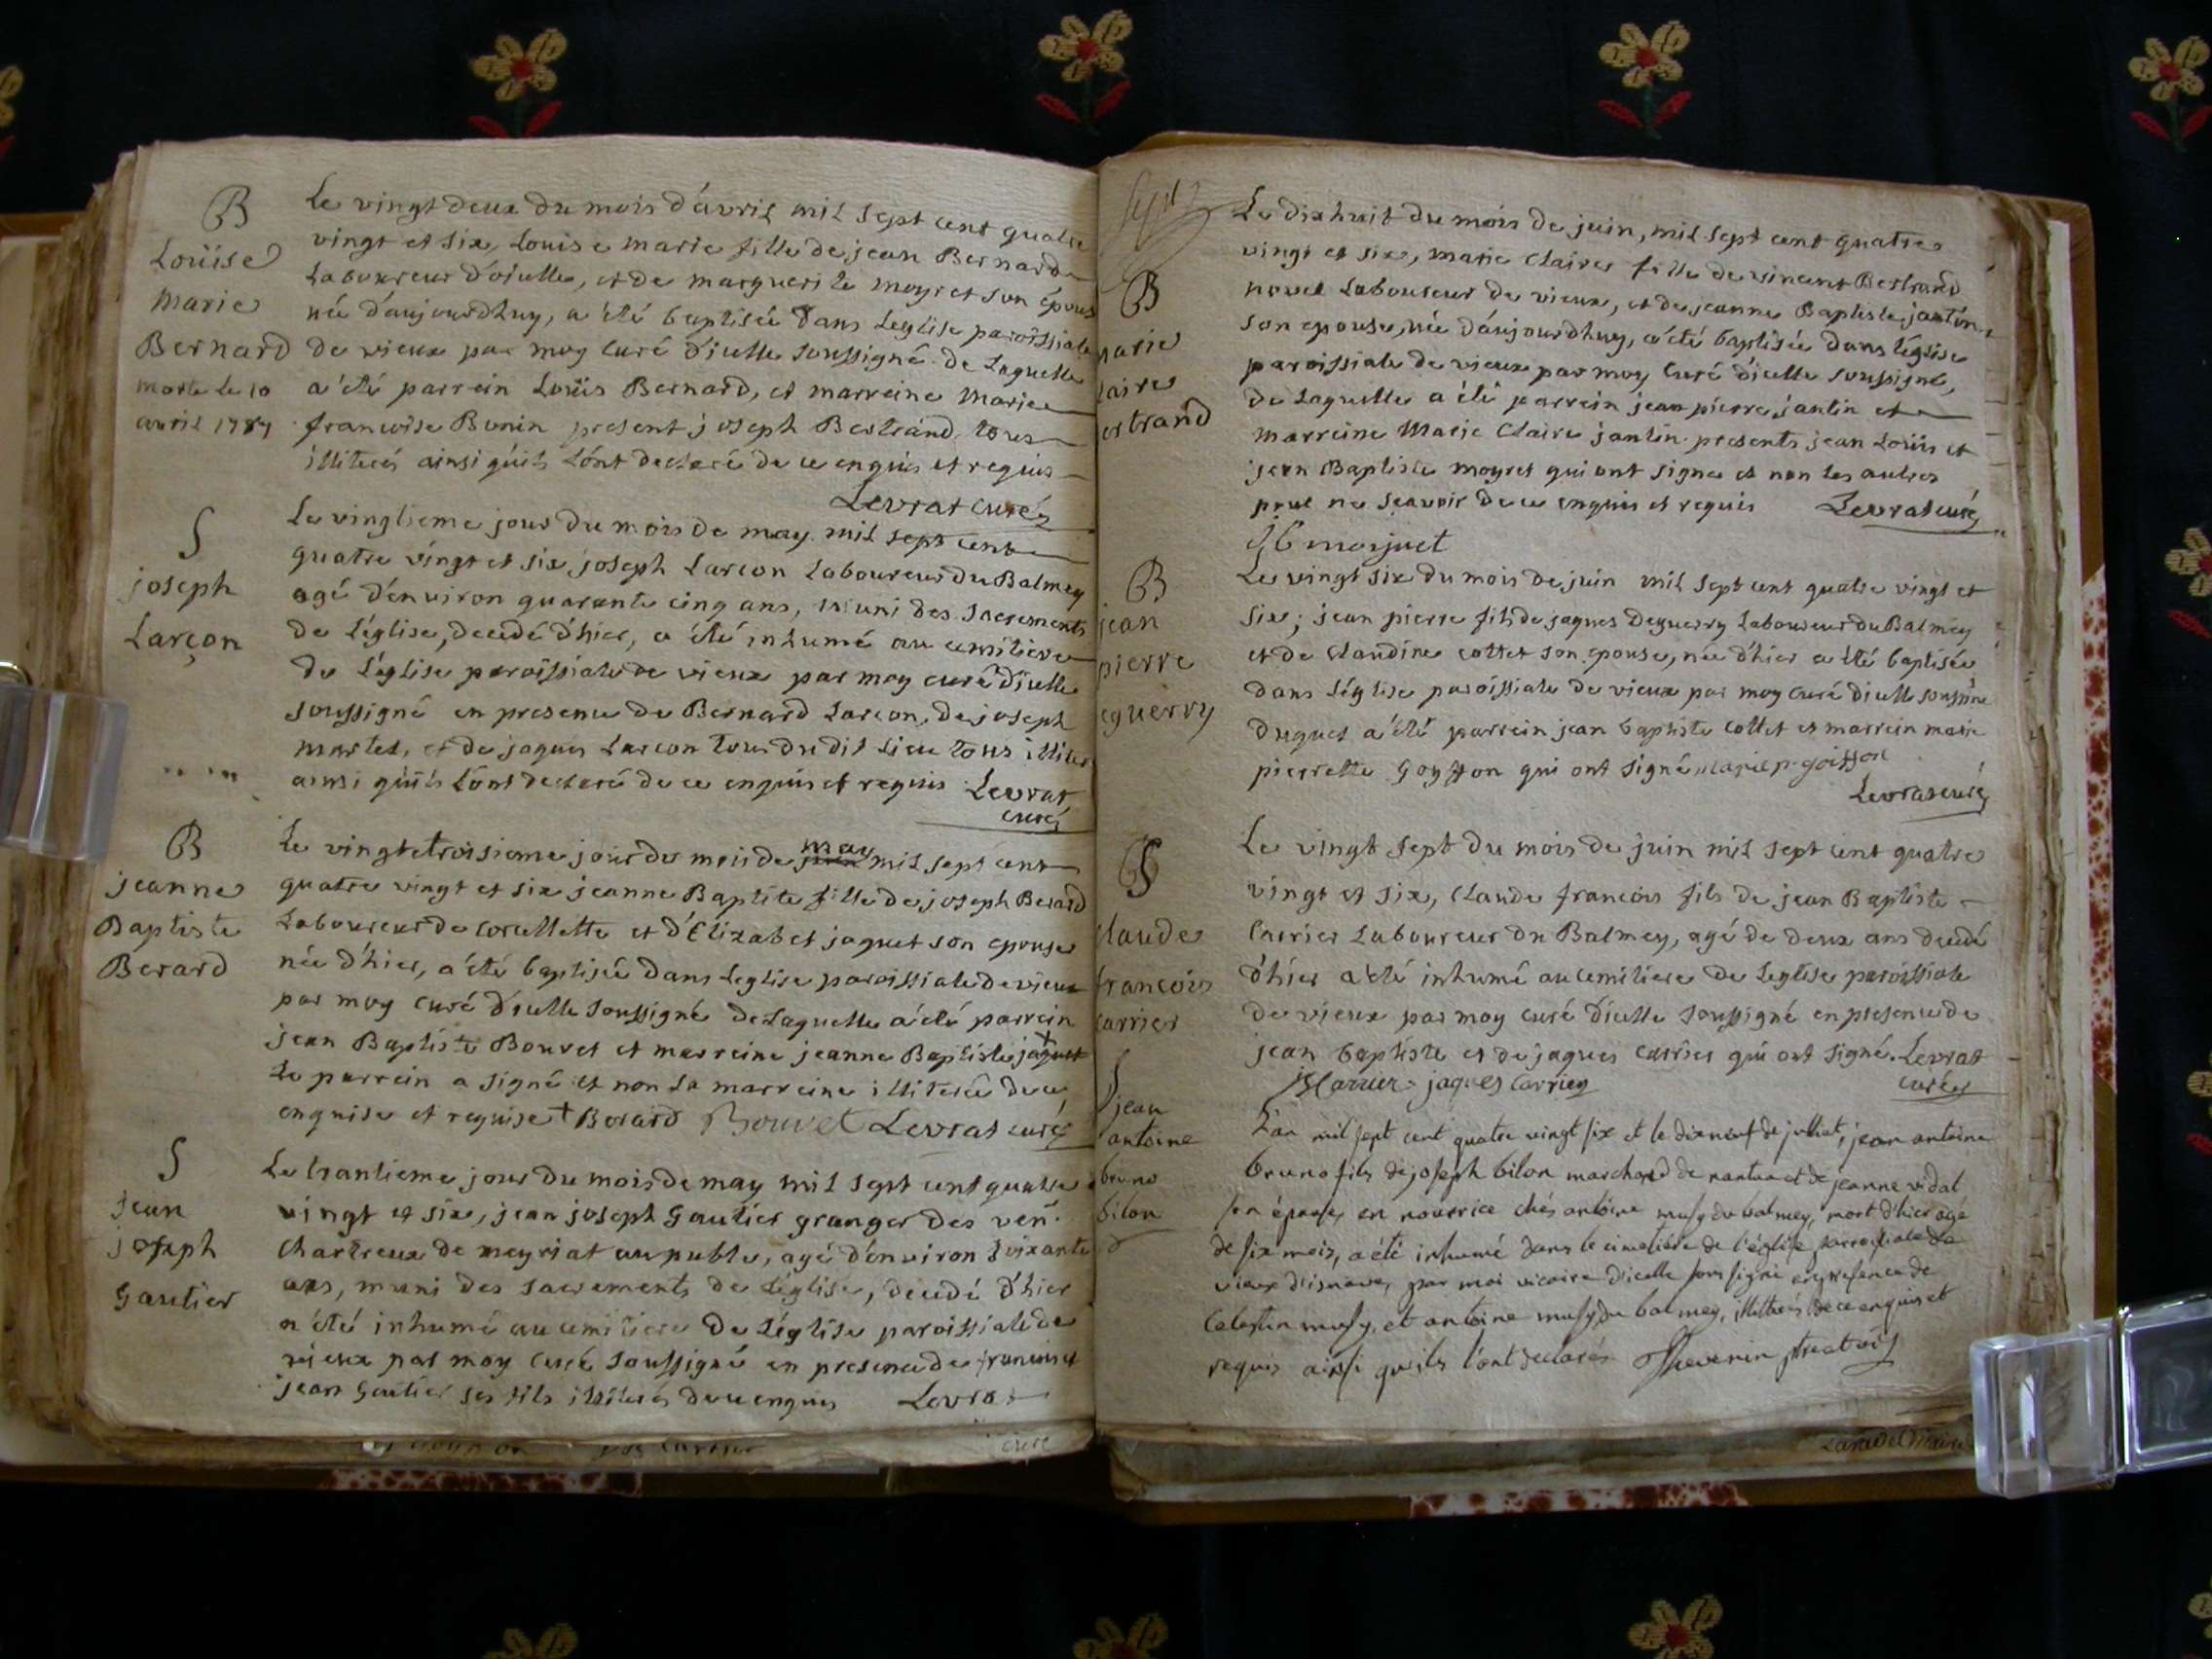 B
Loüise
Marie
Bernard
morte le 10
avril 1787
Le vingt deux du mois d'avril mil sept cent quatre
vingt et six, Louise marie fille de jean Bernard
Laboureur d'icelle, et de marguerite moyret son épouse
née d'aujourdhuy, a été baptisée dans Leglise paroissiale
de vieux par moy curé d'icelle soussigné de Laquelle
a été parrein Loüis Bernard, et marreine Marie
francoise Bonin present joseph Bertrand tous
illiterés ainsi qúils lónt declaré de ce enquis et requis
Levrat curé
S
joseph
Larçon
Le vingtieme jour du mois de may mil sept cent
quatre vingt et six joseph Larcon Laboureur du Balmey
agé d'environ quarante cinq ans, muni des sacrements
de L'église, decedé d'hier, a été inhumé au cemitiere
de L'église paroissiale de vieux par moy curé d'icelle
soussigné en presence de Bernard Larcon, de joseph
martel, et de jaques Larcon tous du dit Lieu tous illiter
ainsi qúils lónt declaré de ce enquis et requis Levrat
curé
B
jeanne
Baptiste
Berard
Le vingtetroisieme jour du mois de may mil sept cent
quatre vingt et six jeanne Baptite fille de joseph Berard
Laboureur de corcellette et d'Elizabet jaquet son epouse
née d'hier, a été baptisée dans Leglise paroissiale de vieux
par moy curé d'icelle soussigné de Laquelle a été parrein
jean Baptiste Bouvet et marreine jeanne Baptiste jaquet +
Le parrein a signé et non La marreine illiterée de ce
enquise et requise + Berard Bouvet Levrat curé
S
jean
joseph
Gautier
Le trantieme jour du mois de may mil sept cent quatre
vingt et six, jean joseph Gautier granger des ven.
Chartreux de meyriat au publu, agé d'environ soixante
ans, muni des sacrements de L'église, decedé d'hier
a été inhumé au cemitiere de L'église paroissiale de
vieux par moy curé soussigné en presence de francois et
jean Gautier ses fils illiterés de ce enquis Levrat
curé
B
marie
laire
ertrand
Le dix huit du mois de juin, mil sept cent quatre
vingt et six, marie Claire fille de vincent Bertrand
novel Laboureur de vieux, et de jeanne Baptiste jantin
son epouse, née d'aujourdhuy, a été baptisée dans léglise
paroissiale de vieux par moy curé d'icelle soussigné,
de Laquelle a été parrein jean pierre jantin et
marreine Marie Claire jantin presents jean Loüis et
jean Baptiste moyret qui ont signé et non les autres
pour ne scavoir de ce enquis et requis Levrat curé
B
jean
pierre
eguerry
Le vingt six du mois de juin mil sept cent quatre vingt et
six; jean pierre fils de jaques Deguerry Laboureur du Balmey
et de Claudine cottet son epouse, née d'hier a été baptisée
dans L'église paroissiale de vieux par moy curé d'icelle soussigné
duquel a été parrein jean baptiste cottet et marrein marie
pierrette Goyffon qui ont signé marie p. goiffon
Levrat curé
S
claude
francois
carrier
Le vingt sept du mois de juin mil sept cent quatre
vingt et six, Claude francois fils de jean Baptiste
Carrier Laboureur du Balmey, agé de deux ans decedé
d'hier a été inhumé au cemitiere de Leglise paroissiale
de vieux par moy curé d'icelle soussigné en presence de
jean baptiste et de jaques carrier qui ont signé. Levrat
jB carrier jaques Carrier curé
S
jean
antoine
bruno
bilon
L'an mil sept cent quatre vingt six et le dixneuf de juillet, jean antoine
bruno fils de joseph bilon marchand de nantua et de jeanne vidal
son épouse, en nourrice chés antoine musy du balmey, mort d'hier agé
de six mois, a été inhumé dans le cimetière de l'église parroissiale de
vieux d'isnave, par moi vicaire d'icelle soussigné en presence de
Celestin musy, et antoine musy du balmey, illitterés de ce enquis et
requis ainsi qu'ils l'ont declarés Thevenin